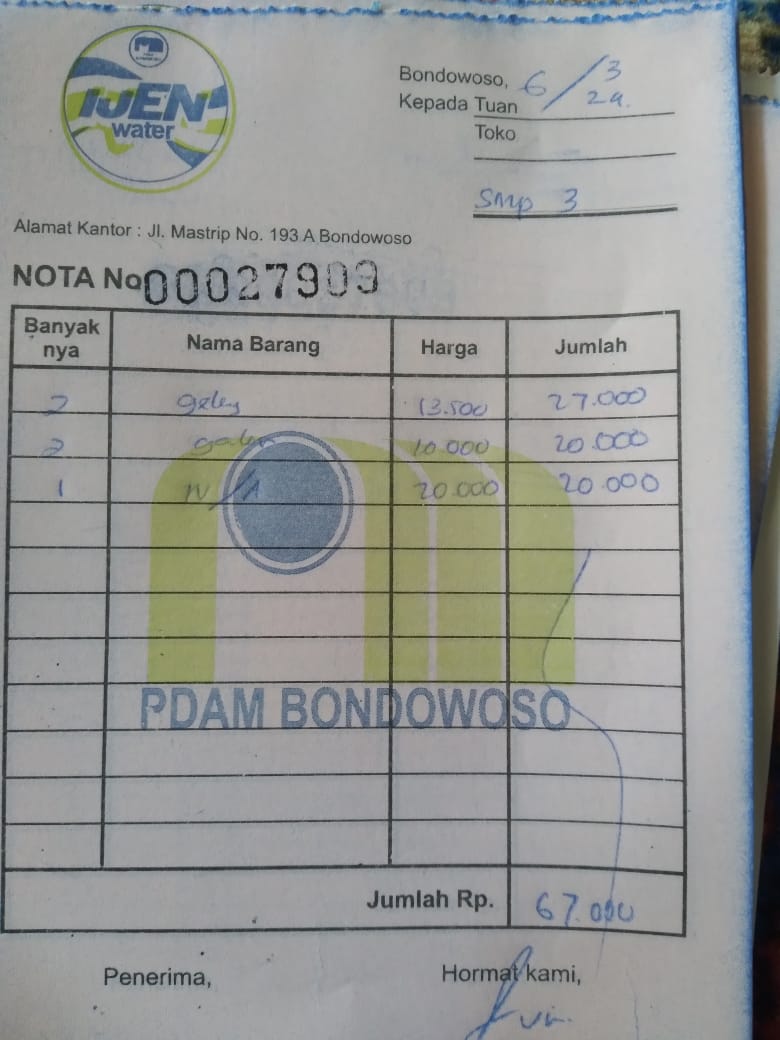 IJEN
water
Bondowoso, 6/3 24.
Kepada Tuan
Toko
SMP 3
Alamat Kantor : Jl. Mastrip No. 193 A Bondowoso
NOTA No 00027909
Banyak nya Nama Barang Harga Jumlah
2 13.500 27.000
2 galon 10.000 20.000
1 20.000 20.000
PDAM BONDOWOSO
Jumlah Rp. 67.000
Penerima, Hormat kami,